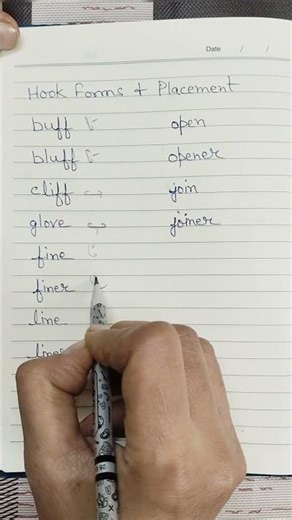 Date / /
Hook Forms & Placement
buff open
bluff opener
cliff join
glove joiner
fine
finer
line